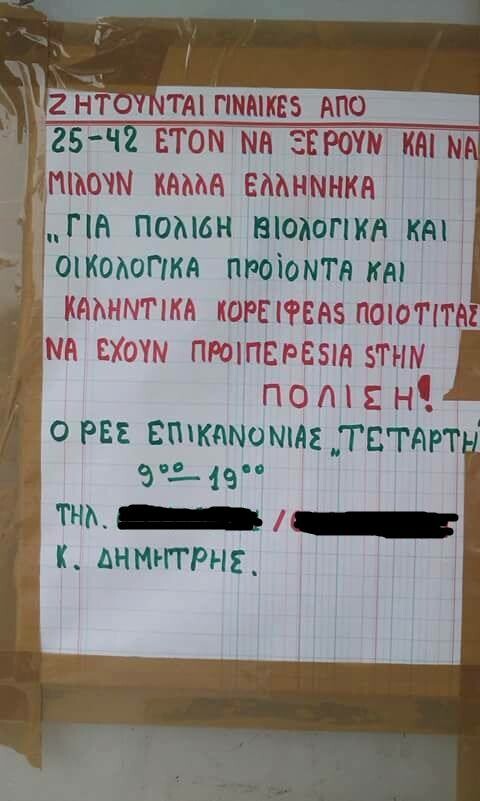 ΖΗΤΟΥΝΤΑΙ ΓΙΝΑΙΚΕS ΑΠΟ
25-42 ΕΤΟΝ ΝΑ ΞΕΡΟΥΝ ΚΑΙ ΝΑ
ΜΙΛΟΥΝ ΚΑΛΛΑ ΕΛΛΗΝΗΚΑ
„ΓΙΑ ΠΟΛΙΣΗ ΒΙΟΛΟΓΙΚΑ ΚΑΙ
ΟΙΚΟΛΟΓΙΚΑ ΠΡΟΪΟΝΤΑ ΚΑΙ
ΚΑΛΗΝΤΙΚΑ ΚΟΡΕΙΦΕΑS ΠΟΙΟΤΙΤΑΣ
ΝΑ ΕΧΟΥΝ ΠΡΟΙΠΕΡΕSΙΑ SΤΗΝ
ΠΟΛΙΣΗ!
Ο ΡΕΣ ΕΠΙΚΑΝΟΝΙΑΣ „ΤΕΤΑΡΤΗ"
9⁰⁰ — 19⁰⁰
ΤΗΛ. /
Κ. ΔΗΜΗΤΡΗΣ.